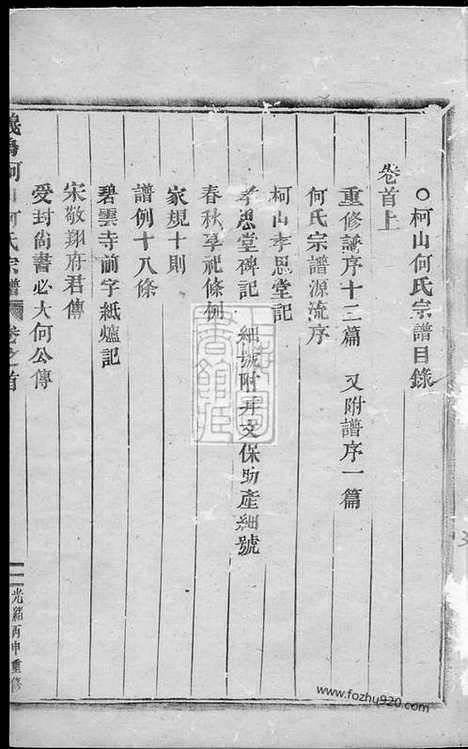 ○柯山何氏宗譜目錄
卷首上
重修譜序十三篇　又附譜序一篇
何氏宗譜源流序
柯山孝思堂記
孝思堂碑記　細號附弁文保助產細號
春秋享祀條例
家規十則
譜例十八條
碧雲寺前字紙爐記
宋敬翔府君傳
受封尚書必大何公傳
義烏柯山何氏宗譜　卷之首
光緒丙申重修
www.fozhu920.com